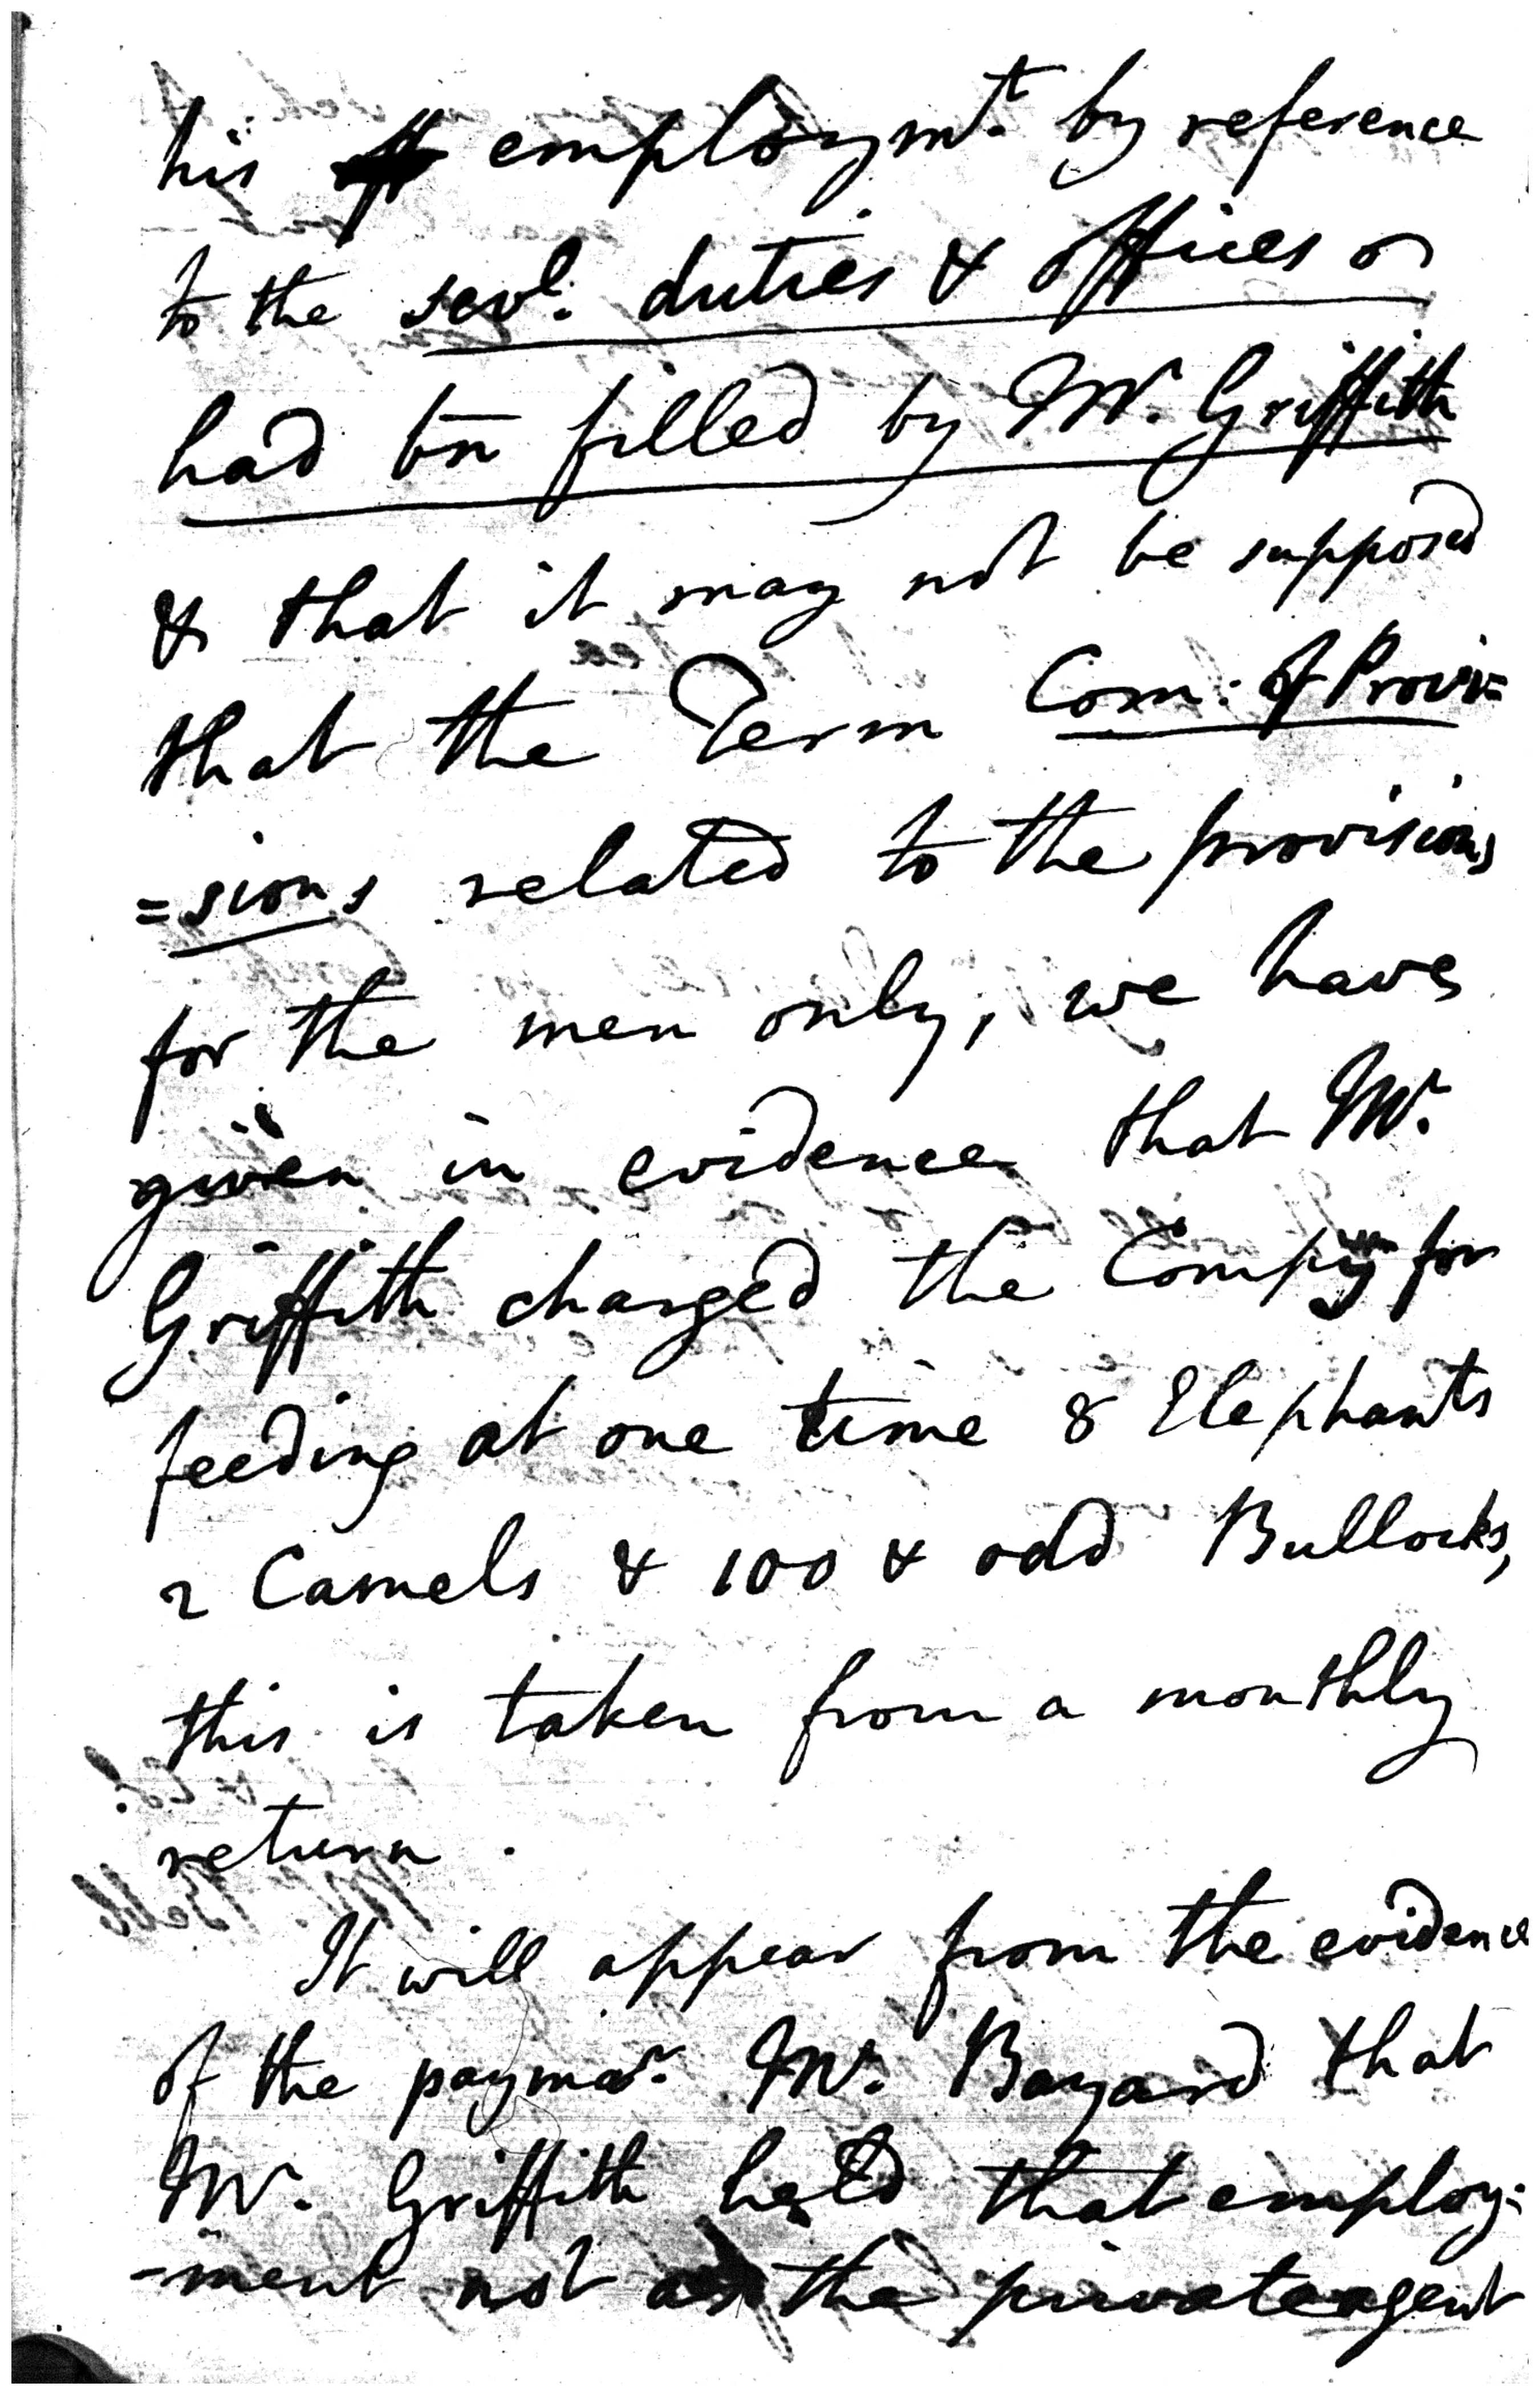 his employmt. by reference
to the sevl. duties & offices
had bn filled by Mr. Griffith
& that it may not be supposed
that the Term Com: of Provi=
=sions related to the provisions
for the men only, we have
given in evidence that Mr.
Griffith charged the Compy for
feeding at one time 8 Elephants
2 Camels & 100 & odd Bullocks,
this is taken from a monthly
return.
It will appear from the evidence
of the paymar. Mr. Bayard that
Mr. Griffith held that employ:
-ment not as the private agent